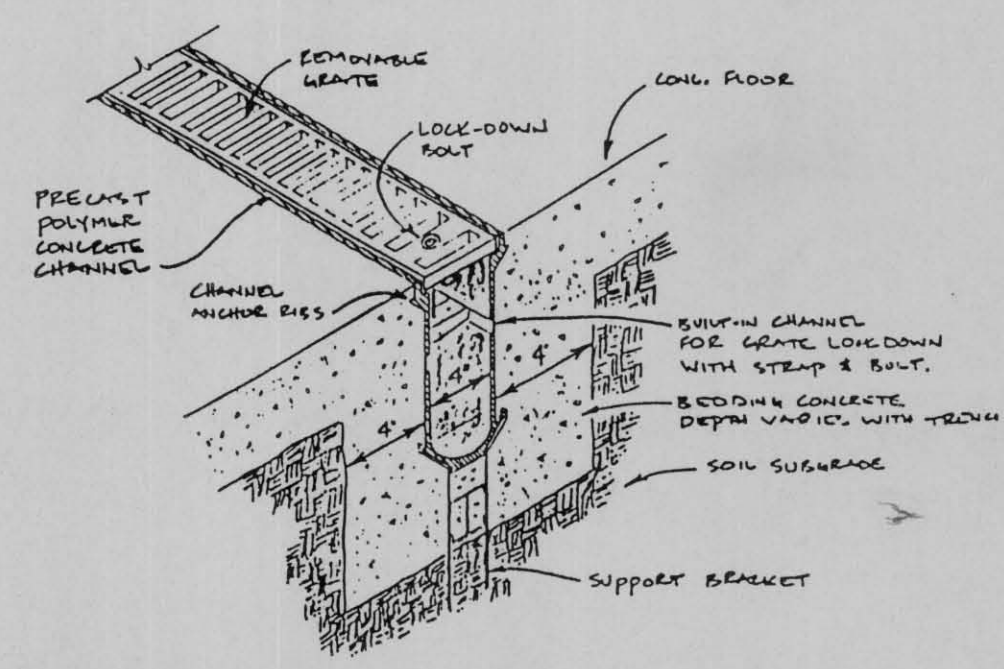 REMOVABLE
GRATE
CONC. FLOOR
LOCK-DOWN
BOLT
PRECAST
POLYMER
CONCRETE
CHANNEL
CHANNEL
ANCHOR RIBS
BUILT-IN CHANNEL
FOR GRATE LOCKDOWN
WITH STRAP & BOLT.
4"
4"
4"
BEDDING CONCRETE
DEPTH VARIES WITH TRENCH
SOIL SUBGRADE
SUPPORT BRACKET